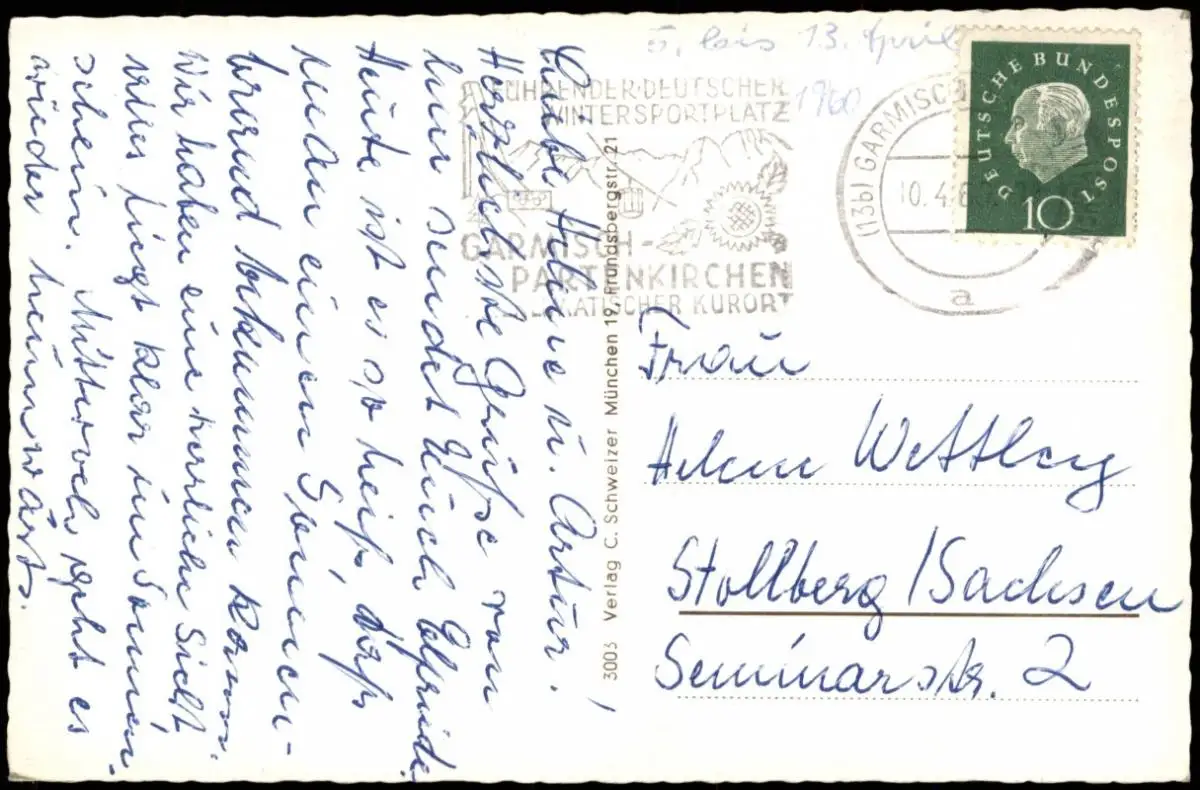 5. bis 13. April
1960
FÜHRENDER DEUTSCHER
WINTERSPORTPLATZ
GARMISCH-
PARTENKIRCHEN
KLIMATISCHER KURORT
(13b) GARMISCH
10.4.6
a
DEUTSCHE BUNDESPOST
10
Liebe Helene u. Artur!
Herzlichste Grüße von
hier sendet Euch Elfriede.
Heute ist es so heiß, daß
man einen Sonnen-
brand bekommen kann.
Wir haben eine herrliche Sicht
alles liegt klar im Sonnen-
schein. Mittwoch geht es
wieder heimwärts.
3003 Verlag C. Schweizer München 19, Frundsbergstr. 21
Frau
Helene Wettley
Stollberg / Sachsen
Seminarstr. 2